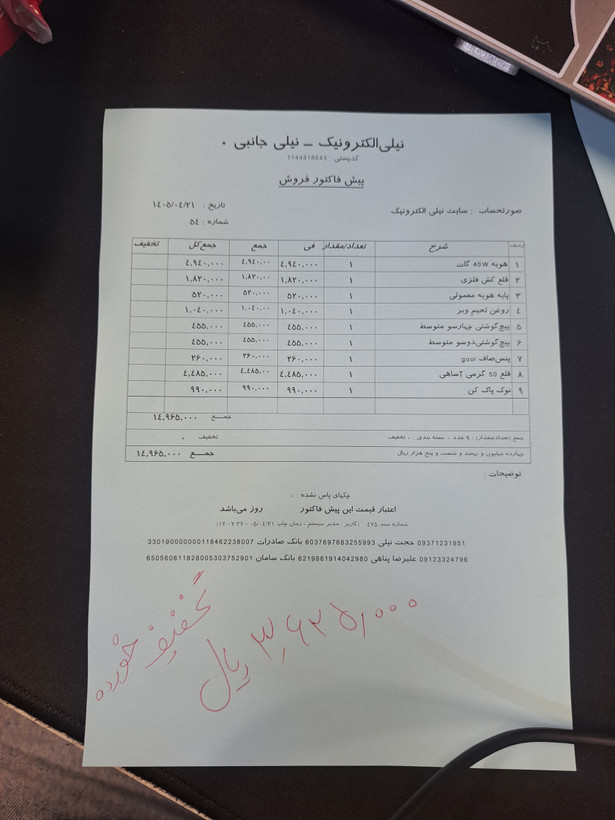 نیلی الکترونیک – نیلی جانبی ۰
کدپستی : 1144818643
پیش فاکتور فروش
تاریخ : ۱٤۰٥/۰٤/۲۱
صورتحساب : سایت نیلی الکترونیک
شماره : ٥٤
ردیف شرح تعداد/مقدار فی جمع جمع کل تخفیف
۱ هویه 40W گات ۱ ٤,۹٤۰,۰۰۰ ٤,۹٤۰,۰۰ ٤,۹٤۰,۰۰۰
۲ قلع کش فلزی ۱ ۱,۸۲۰,۰۰۰ ۱,۸۲۰,۰۰ ۱,۸۲۰,۰۰۰
۳ پایه هویه معمولی ۱ ٥۲۰,۰۰۰ ٥۲۰,۰۰۰ ٥۲۰,۰۰۰
٤ روغن لحیم وبر ۱ ۱,۰٤۰,۰۰۰ ۱,۰٤۰,۰۰ ۱,۰٤۰,۰۰۰
٥ پیچ گوشتی چهارسو متوسط ۱ ٤٥٥,۰۰۰ ٤٥٥,۰۰۰ ٤٥٥,۰۰۰
٦ پیچ گوشتی دوسو متوسط ۱ ٤٥٥,۰۰۰ ٤٥٥,۰۰۰ ٤٥٥,۰۰۰
۷ پنس صاف gooi ۱ ۲٦۰,۰۰۰ ۲٦۰,۰۰۰ ۲٦۰,۰۰۰
۸ قلع 50 گرمی آساهی ۱ ٤,٤۸٥,۰۰۰ ٤,٤۸٥,۰۰ ٤,٤۸٥,۰۰۰
۹ نوک پاک کن ۱ ۹۹۰,۰۰۰ ۹۹۰,۰۰۰ ۹۹۰,۰۰۰
جمــع ۱٤,۹٦٥,۰۰۰
جمع (تعداد/مقدار) : ۹ عدد - بسته بندی : ۰ تخفیف تخفیف ۰
چهارده میلیون و نهصد و شصت و پنج هزار ریال جمــع ۱٤,۹٦٥,۰۰۰
توضیحات :
چکهای پاس نشده : ۰
اعتبار قیمت این پیش فاکتور روز می‌باشد
شماره سند ٤۷٥ (کاربر : مدیر سیستم ، زمان چاپ ۰٥/۰٤/۲۱ - ۱۷:۰۷:۲۷)
09371231951 حجت نیلی 6037697683255993 بانک صادرات 330190000000118462238007
09123324796 علیرضا پناهی 6219861914042980 بانک سامان 650560611828005303752901
تخفیف خورده
۳,۶۳۵,۰۰۰ ریال